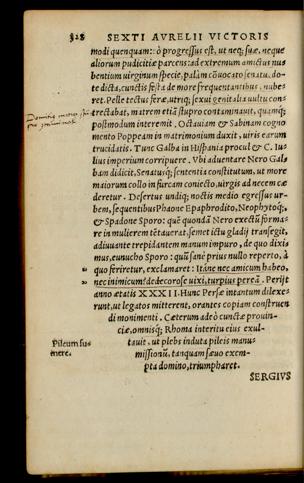 328 SEXTI AVRELII VICTORIS
modi quenquam: ò progressus est, ut neq; suæ, neque
aliorum pudicitiæ parcens: ad extremum amictus nu‍
bentium uirginum specie, palàm cōuocato senatu, do‍
te dicta, cunctis festa de more frequentantibus, nube‍
ret. Pelle tectus feræ, utriq; sexui genitalia uultu con‍
trectabat, matrem etiā stupro contaminauit, quamq́;
postmodum interemit. Octauiam & Sabinam cogno
mento Poppeam in matrimonium duxit, uiris earum
trucidatis. Tunc Galba in Hispania procul & C. Iu‍
lius imperium corripuere. Vbi aduentare Nero Gal‍
bam didicit, Senatusq́; sententia constitutum, ut more
maiorum collo in furcam coniecto, uirgis ad necem cæ
deretur. Desertus undiq; noctis medio egressus ur‍
bem, sequentibus Phaone Epaphrodito, Neophytoq́;,
& Spadone Sporo: quē quondā Nero exectū forma‍
re in mulierem tētauerat, semet ictu gladij transegit,
adiuuante trepidantem manum impuro, de quo dixi
mus, eunucho Sporo: quū sanè prius nullo reperto, à
quo feriretur, exclamaret: Itáne nec amicum habeo,
nec inimicum? dedecorose uixi, turpius pereā. Perijt
anno ætatis XXXII. Hunc Persæ intantum dilexe‍
runt, ut legatos mitterent, orantes copiam construen
di monimenti. Cæterum adeò cunctæ prouin‍
ciæ, omnisq́; Rhoma interitu eius exul‍
Pileum su‍s
tinere. tauit, ut plebs induta pileis manu‍
missionū, tanquam sæuo exem‍
pta domino, triumpharet.
SERGIVS